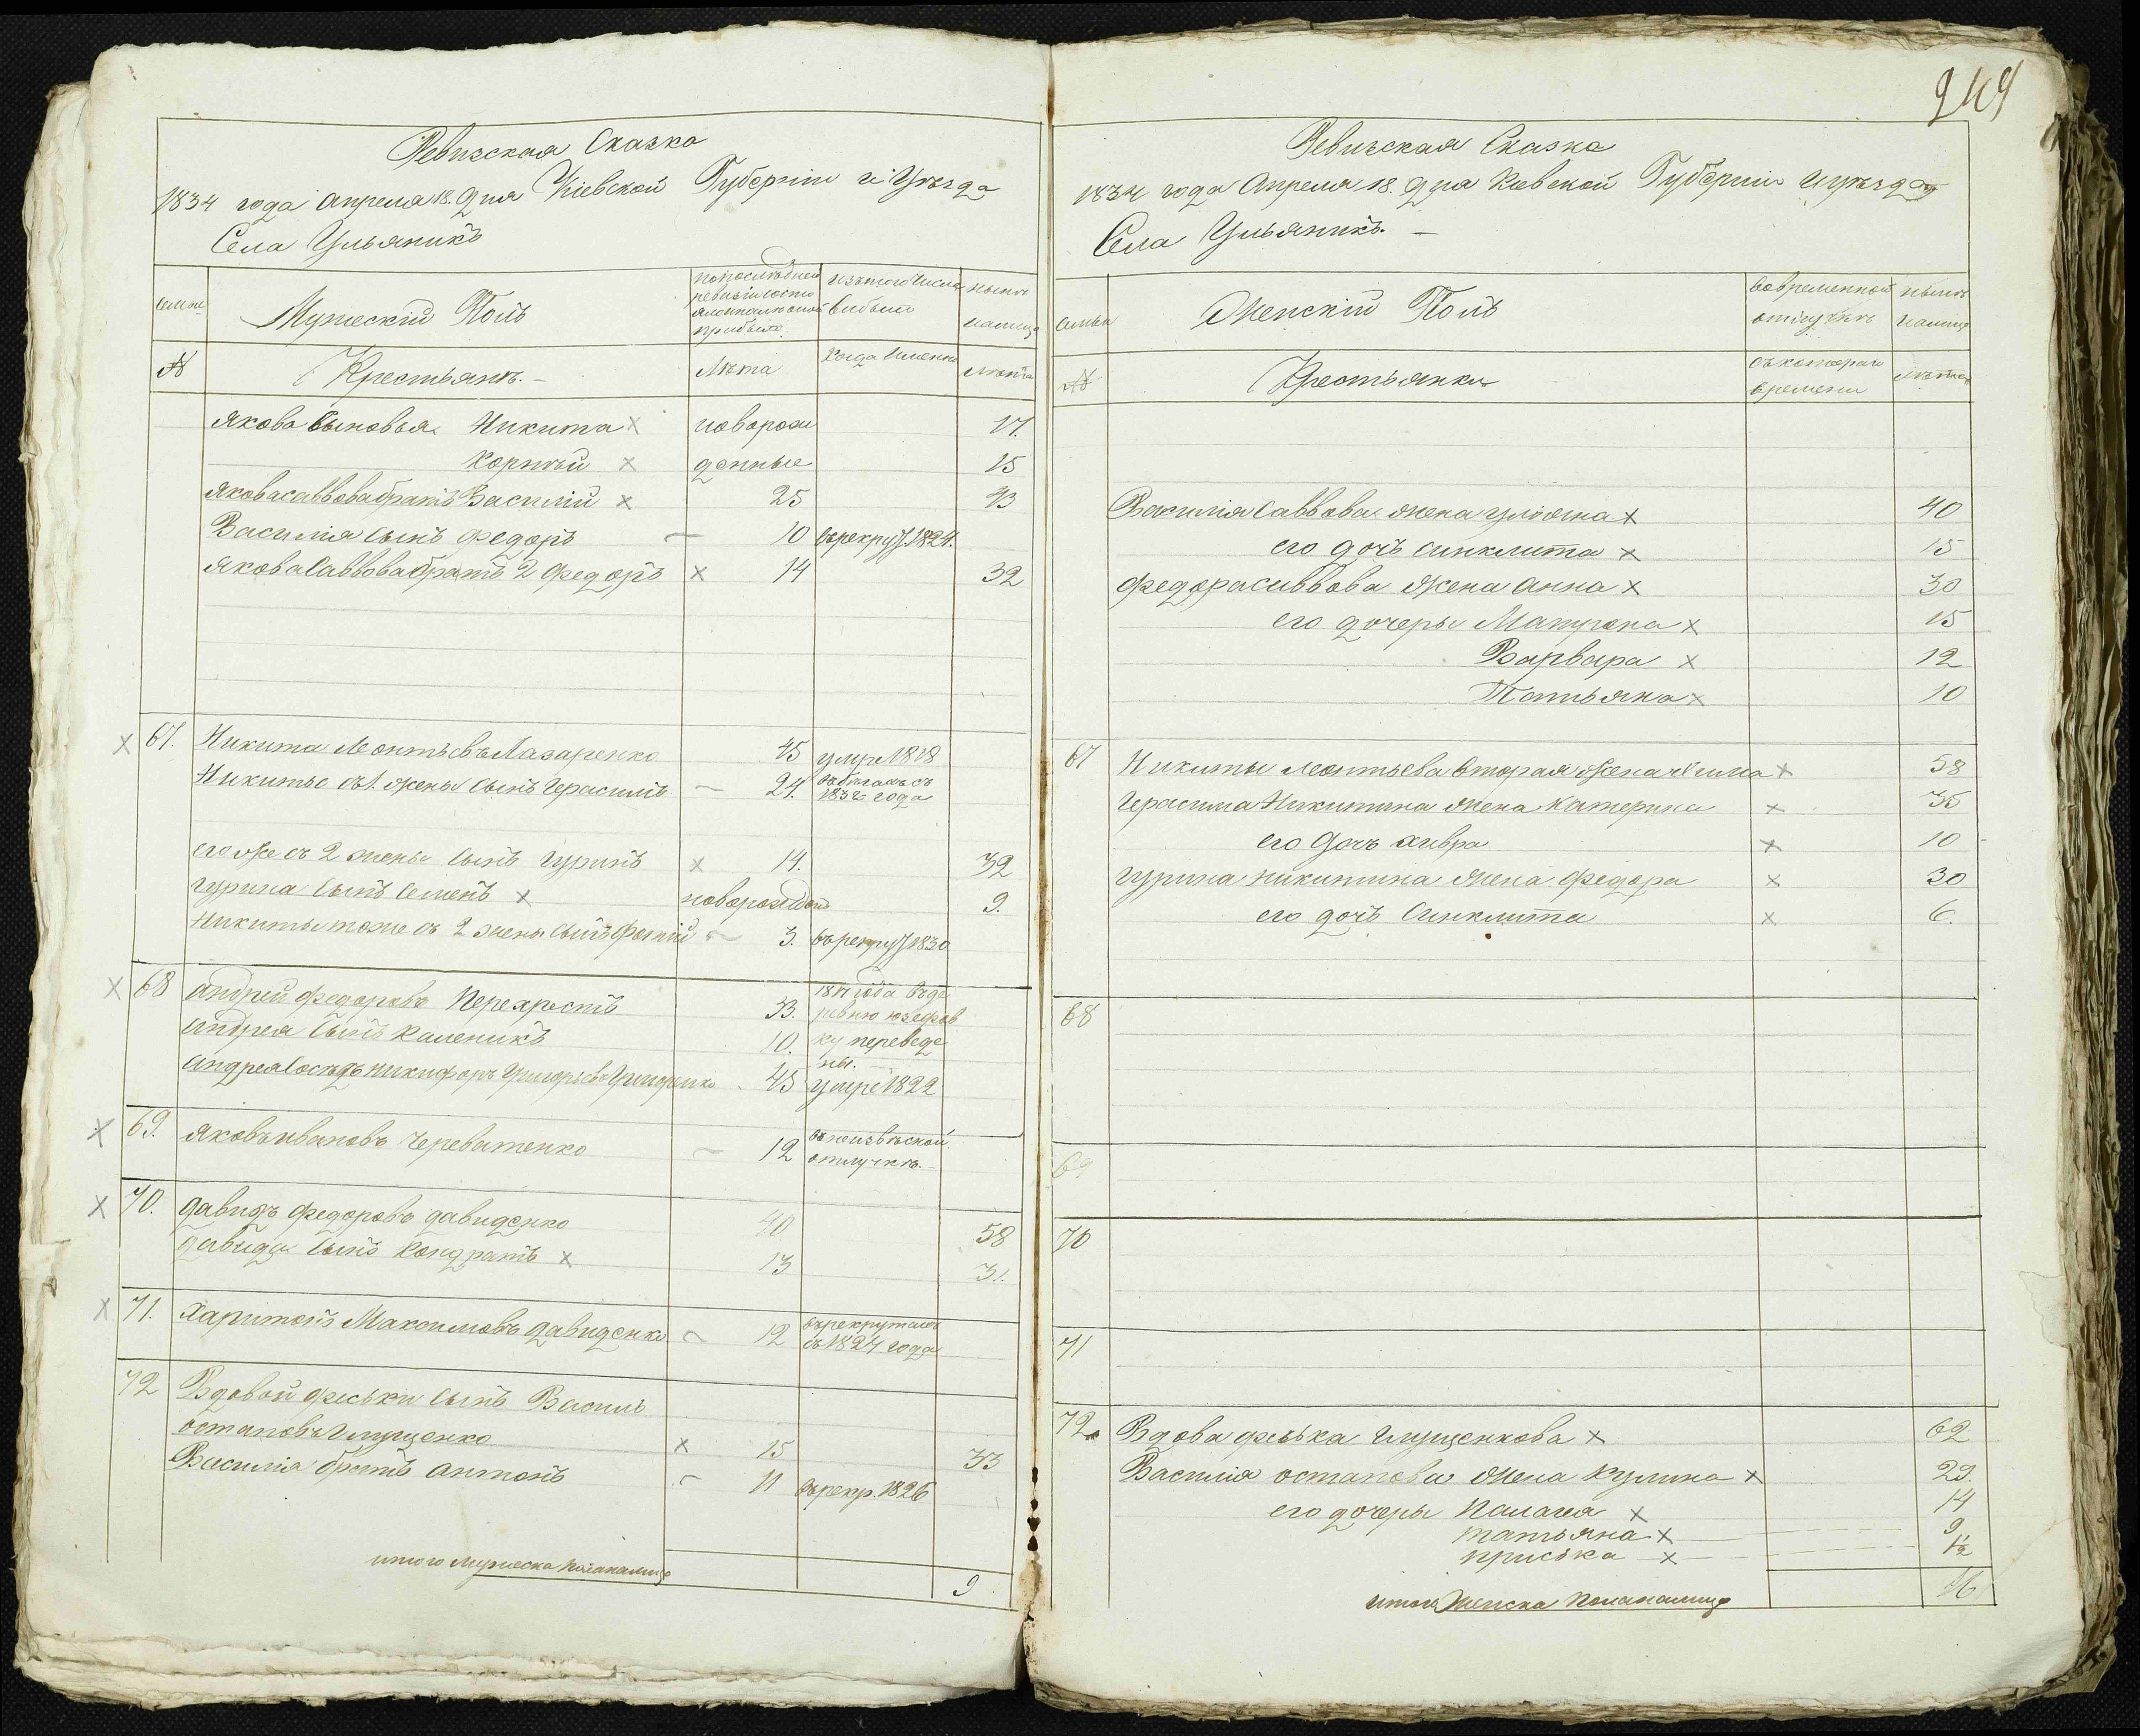 Ревизская Сказка
1834 года Апреля 18. дня Кіевской Губерніи и Уѣзда
Села Ульяникъ
Мужескій Полъ
по последней ревизіи состояло
изъ того числа выбыли
нынѣ налицо
№
Крестьянъ.
Лѣта
Когда именно
Лѣта
Якова Сыновья Никита новорож 17.
Корнѣй денные 15
Якова Саввова братъ Василій 25 43
Василія Сынъ Федоръ 10 в рекрут 1824.
Якова Саввова братъ 2 Федоръ 14 32
67. Никита Леонтьевъ Лазаренко 45 умре 1818
Никиты отъ 1. жены Сынъ Герасимъ 24. въ бегахъ съ
1832 года
его же съ 2 жены Сынъ Гуринъ 14. 32
Гурина Сынъ Семенъ новорожден 9.
Никиты тоже съ 2 жены Сынъ 3. в рекрут 1830
68 Андрей Федоровъ Перехрестъ 33. 1817 года въ де
ревню Юзефов
Андрея Сынъ Каленикъ 10. ку переведе
ны.
Андрея Соседъ Никифоръ Григорьевъ Григоренко 45 умре 1822
69. Яковъ Ивановъ Череватенко 12 въ неизвѣсной
отлучкѣ.
70. Давидъ Федоровъ Давиденко 40 58
Давида Сынъ Кондратъ 13 31.
71. Харитонъ Максимовъ Давиденко 12 в рекрутахъ
съ 1824 года
72 Вдовой Феськи Сынъ Василь
Остаповъ Глущенко 15 33
Василія братъ Антонъ 11 в рекр. 1826
итого мужеска пола налицо 9
249
Ревизская Сказка
1834 года Апреля 18. дня Кіевской Губерніи и уѣзда
Села Ульяникъ.
семья
Женскій Полъ
Во временной отлучкѣ
нынѣ налицо
№
Крестьянки
съ которого времени
Лѣта
Василія Саввова жена Ульяна 40
его дочь Синклита 15
Федора Саввова Жена Анна 30
его дочеры Матрона 15
Варвара 12
Татьяна 10
67 Никиты Леонтьева вторая жена 58
Герасима Никитина жена Катерина 35
его Дочъ Хивра 10
Гурина Никитина жена Федора 30
его дочъ Синклита 6.
68
69
70
71
72. Вдова Феська Глущенкова 62
Василія Остапова жена Кулина 29.
его дочеры Палагея 14
Татьяна 9
Приська 1½
итого Женска Пола налицо 16